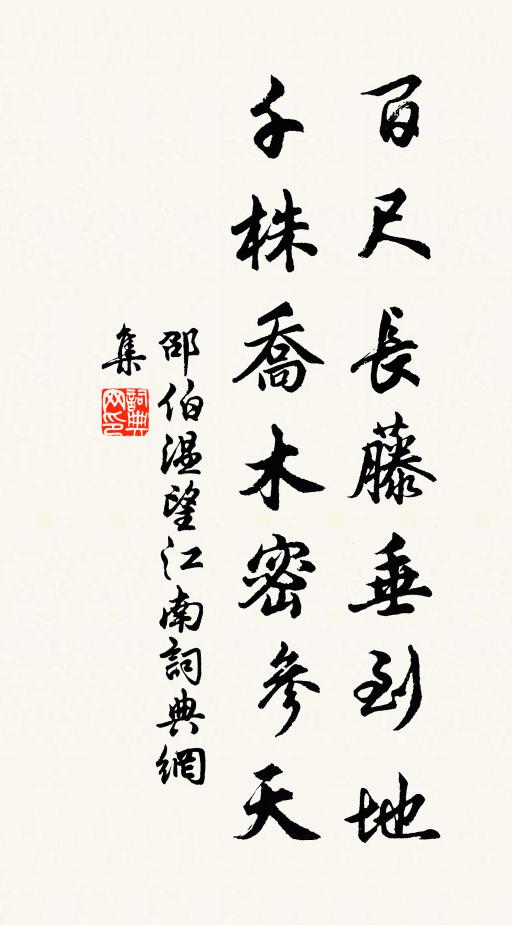 百尺長藤垂到地
千株喬木密參天
邵伯溫望江南詞典網
集
詞典网印